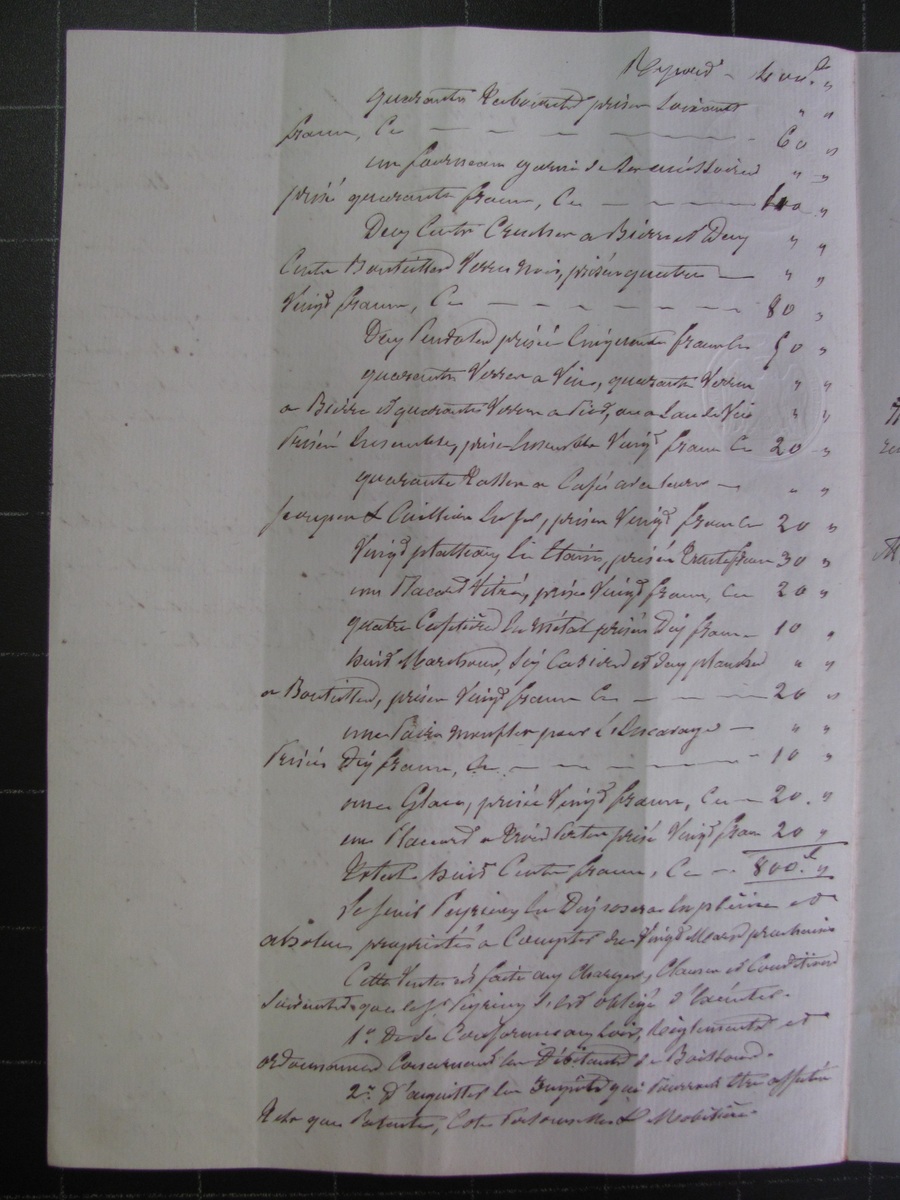 Report — 400.f "
quarante Tabourets prisés soixante " "
francs, Ci — — — — 60 "
un fourneau garni de ses accéssoires " "
prisé quarante francs, Ci — — — 40 "
Deux Cents Cruches a Bierre et Deux " "
Cents Bouteilles Verres noir, prisés quatre — " "
Vingt francs, Ci — — — — 80 "
Deux Pendules prisés Cinquante francs Ci 50 "
quarante Verres a Vin, quarante Verres " "
a Bierre et quarante Verres a Pied, ou a Eau de Vie " "
Prisés Ensembles, prisés Ensemble Vingt francs Ci 20 "
quarante Tasses a Caffé avec leurs — " "
soucoupes & Cuillières en fer, prisés Vingt francs Ci 20 "
Vingt platteaux En Etain, prisés Trente francs 30 "
un Placard Vitré, prisé Vingt francs, Ci 20 "
quatre Caftières En métal prisés Dix francs — 10 "
huit Casiers et deux planches " "
a Bouteilles, prisés Vingt francs Ci — — — 20 "
une Paire pour L' — " "
Prisés Dix francs, Ci — — — — 10 "
une Glace, prisée Vingt francs, Ci — 20. "
un Placard a Trois Portes prisé Vingt francs 20 "
Total huit Cents francs, Ci — 800.f "
Le Sieur Peyrieux En Disposera En pleine et
absolue propriétés a Compter du Vingt Mars prochain
Cette Vente est faite aux Charges, Clauses et Conditions
Suivantes que le Sr Peyrieux s'est obligé d'Exécuter.
1º De se Conformer aux Lois, Réglements et
ordonnances Concernant les Débitants de Boissons.
2º D'acquitter les Impôts qui Pourront être affectés
Tels que Patentes, Cote Personnelles & Mobilière